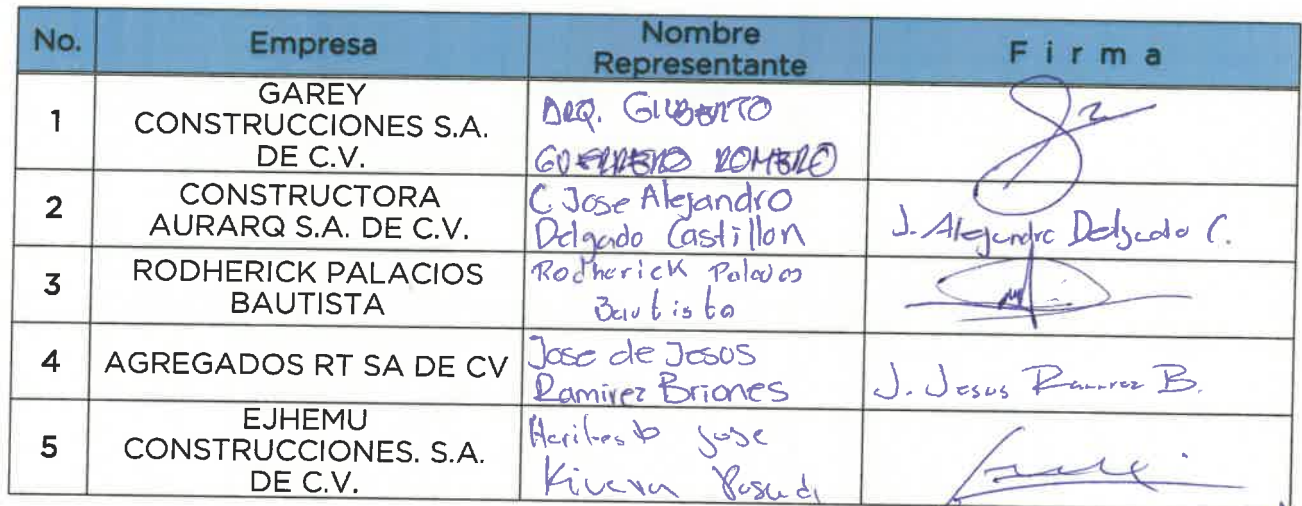 No. Empresa Nombre Representante F i r m a
1 GAREY CONSTRUCCIONES S.A. DE C.V.
ARQ. GILBERTO
GUERRERO ROMERO
2 CONSTRUCTORA AURARQ S.A. DE C.V.
C Jose Alejandro
Delgado Castillon
J. Alejandro Delgado C.
3 RODHERICK PALACIOS BAUTISTA
Rodherick Palacios
Bautista
4 AGREGADOS RT SA DE CV
Jose de Jesus
Ramirez Briones
J. Jesus Ramirez B.
5 EJHEMU CONSTRUCCIONES. S.A. DE C.V.
Heriberto Jose